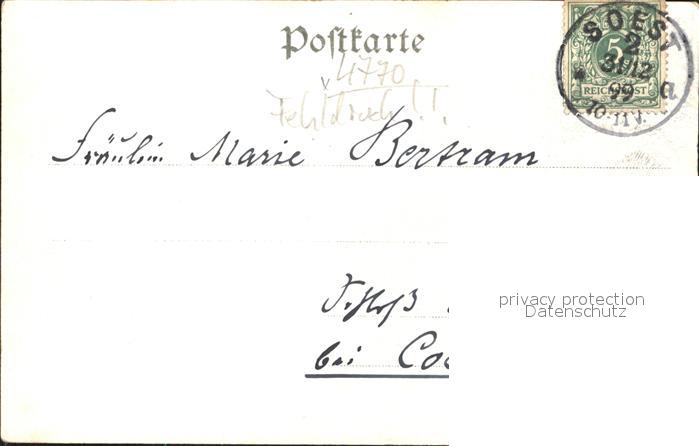 Postkarte
4770
Fehldruck!!
SOEST
2
31/12
99
10-11V.
a
5
REICHSPOST
Fräulein Marie Bertram
Schloß
bei Coe
privacy protection
Datenschutz